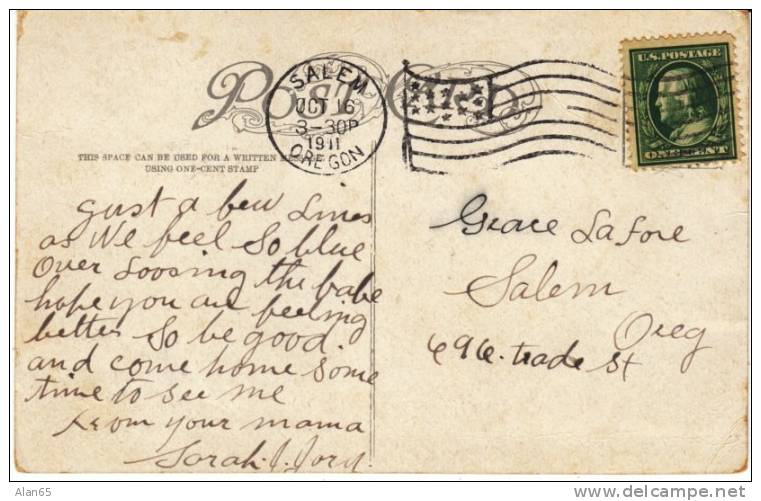 Post Card
SALEM
OCT 16
3-30P
1911
OREGON
U.S. POSTAGE
ONE CENT
THIS SPACE CAN BE USED FOR A WRITTEN
USING ONE-CENT STAMP
Just a few Lines
as We feel So blue
Over Loosing the babe
hope you are feeling
better So be good.
and come home Some
time to see me
from your mama
Sarah. J. Jory.
Grace LaFore
Salem
Oreg
696. trade St
Alan65
www.delcampe.net